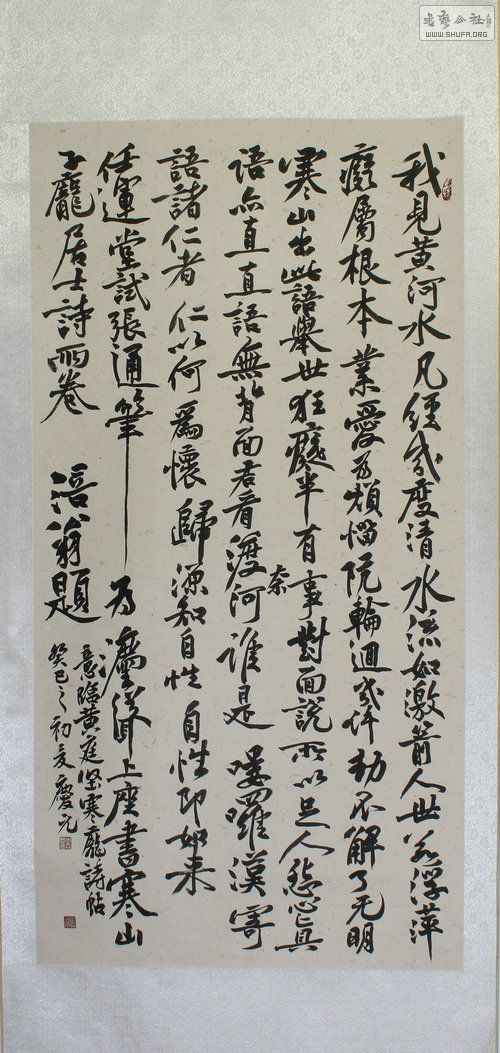 我見黃河水凡經幾度清水流如激箭人世若浮萍
癡屬根本業愛為煩惱阬輪迴幾許劫不解了无明
寒山出此語舉世狂癡半有事對面說所以足人怨心真
語亦直直語無背面君看渡奈河誰是嘍囉漢寄
語諸仁者仁以何為懷歸源知自性自性即如來
任運堂試張通筆為法聳上座書寒山
子龐居士詩兩卷涪翁題
意臨黃庭堅寒龐詩帖
癸巳之初夏慶元
書藝公社
WWW.SHUFA.ORG